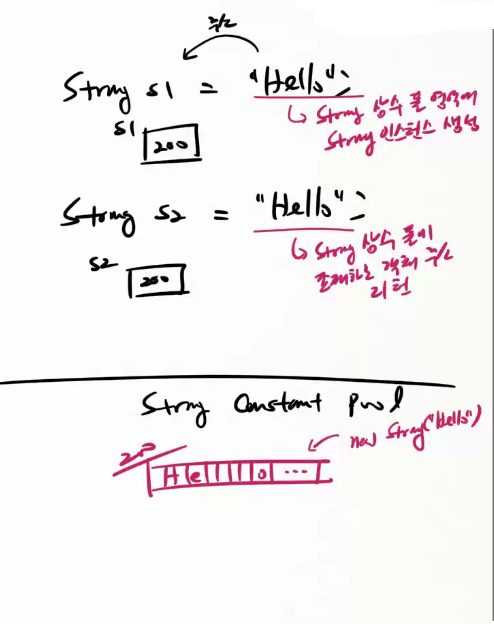 주소
String s1 = "Hello";
↳ String 상수 풀 영역에
String 인스턴스 생성
s1
200
String s2 = "Hello";
↳ String 상수 풀에
존재하는 객체 주소
리턴
s2
200
String Constant Pool
new String("Hello")
200
H e l l o ...